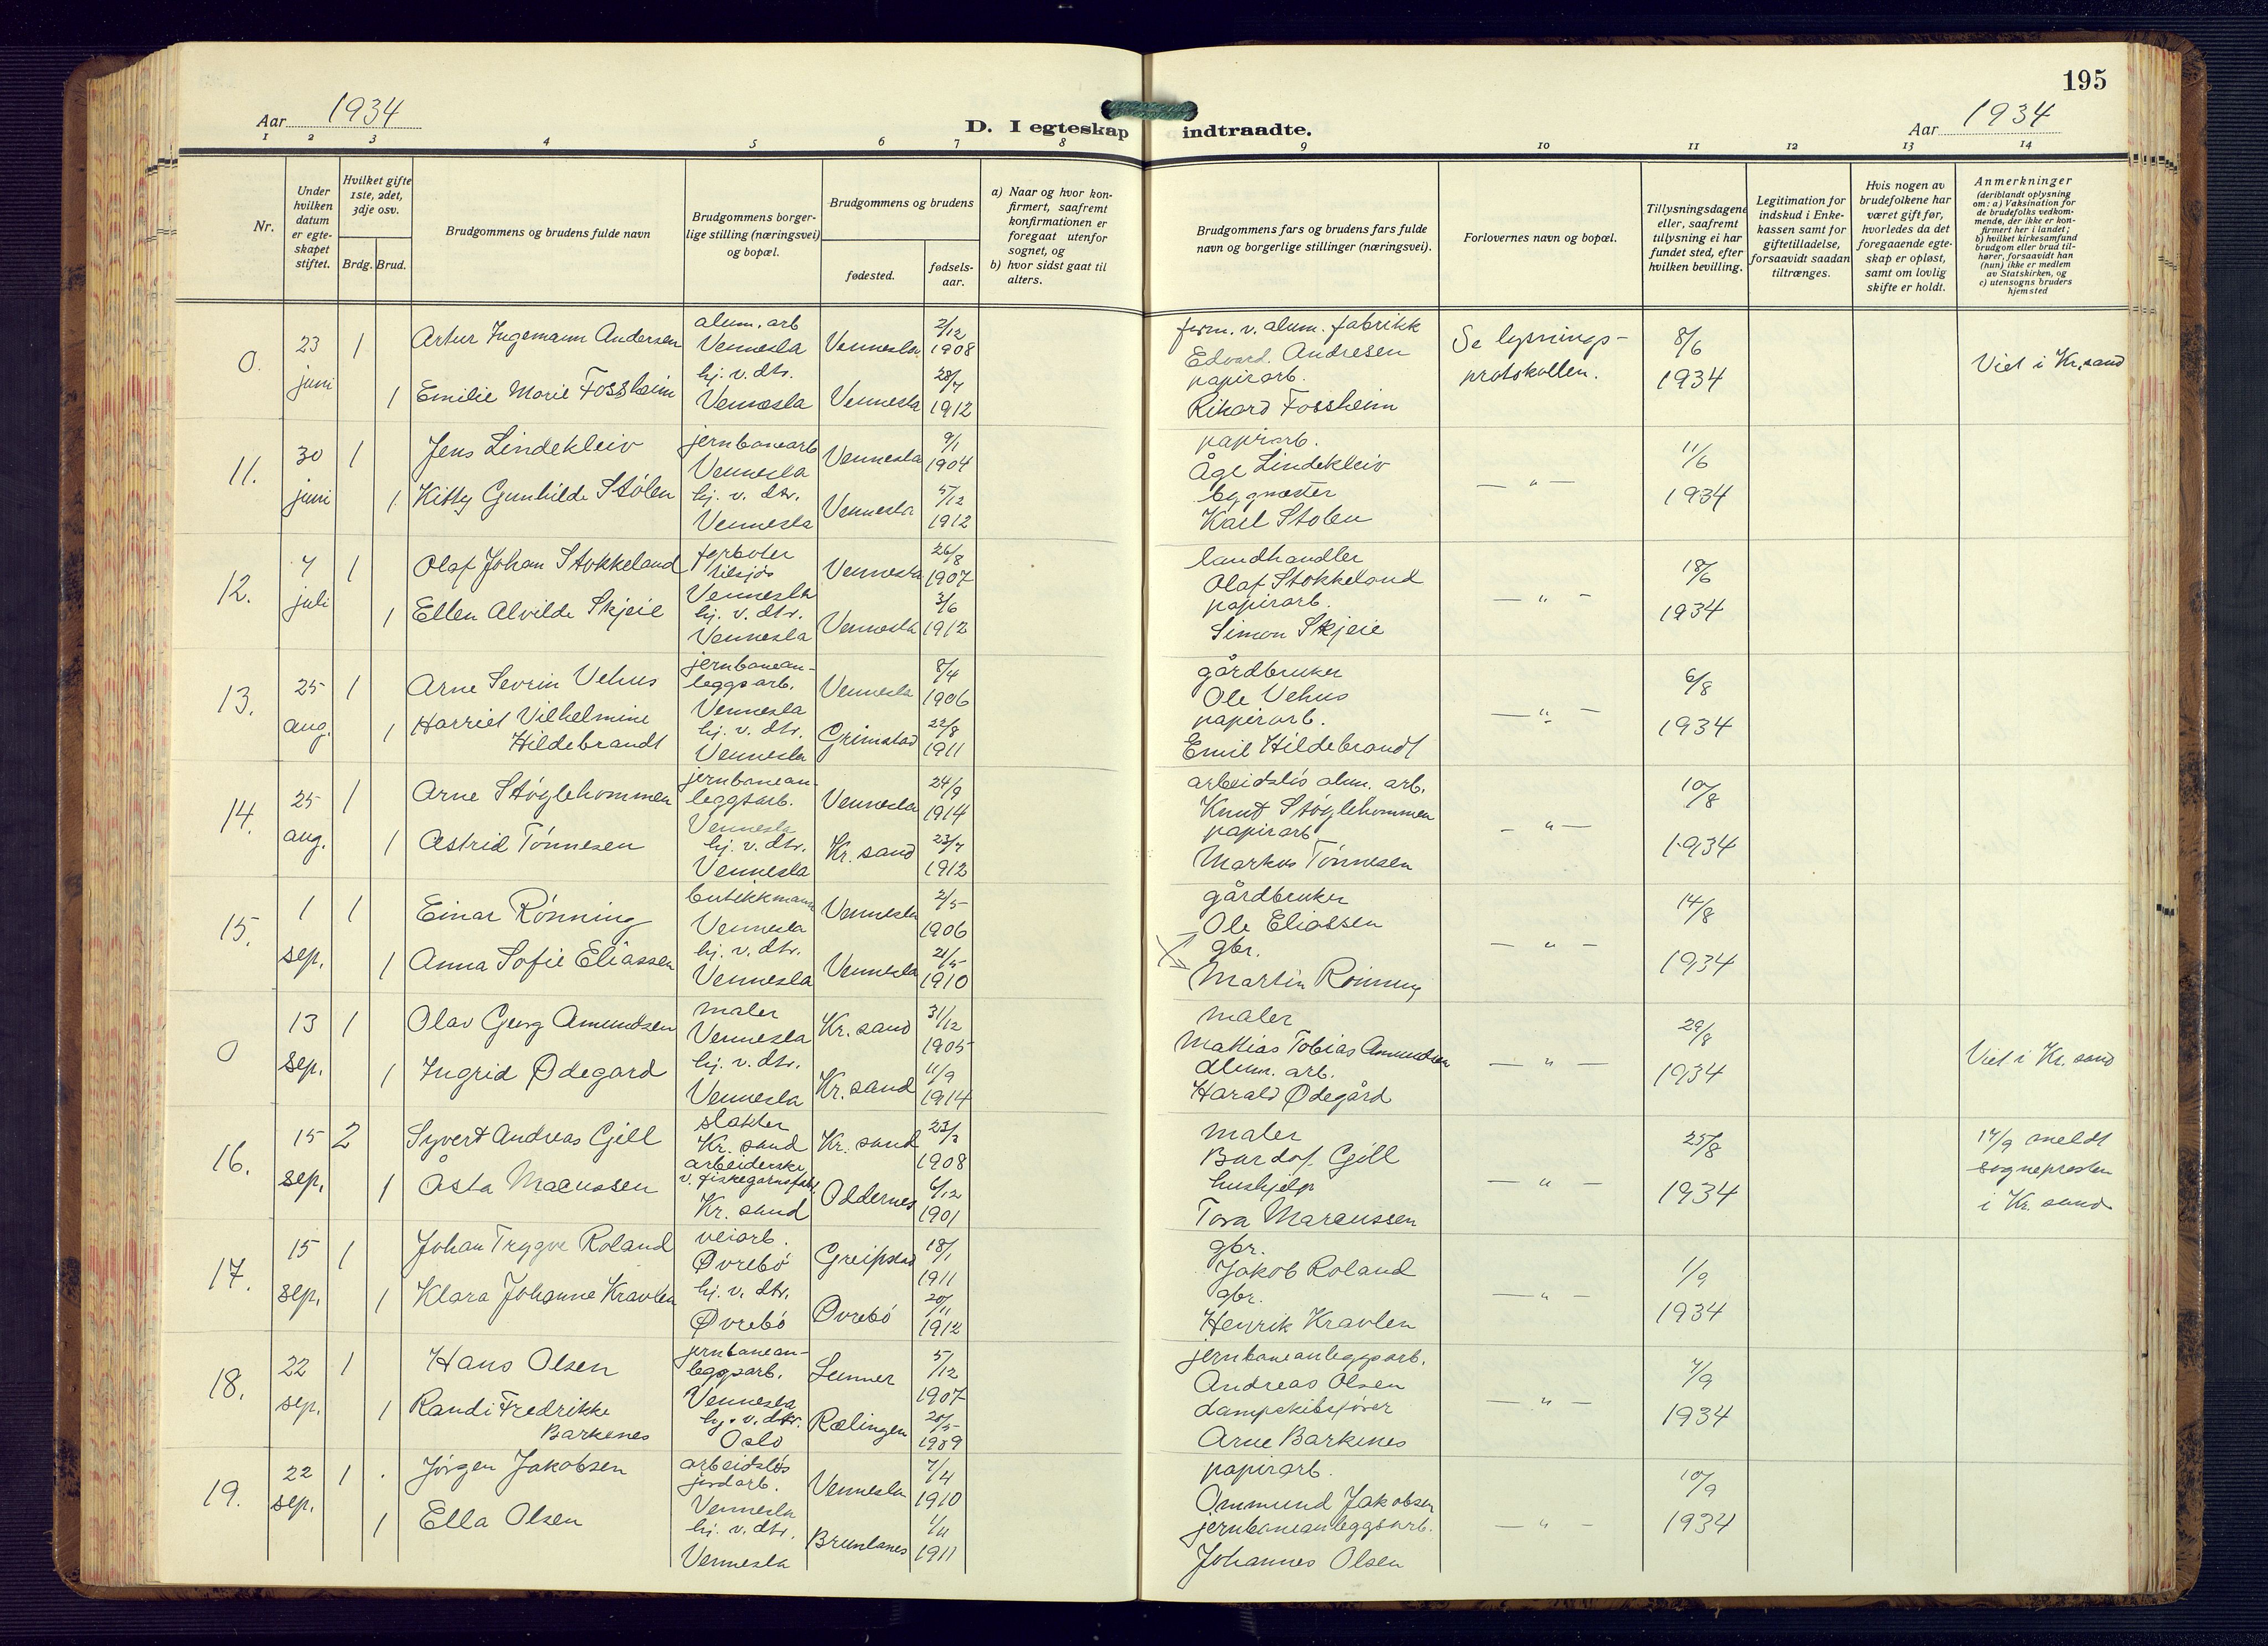 195
Aar 1934
D. I egteskap indtraadte.
Aar 1934
1 2 3 4 5 6 7 8 9 10 11 12 13 14
Nr.
Under hvilken datum er egteskapet stiftet.
Hvilket gifte 1ste, 2det, 3dje osv.
Brdg. Brud.
Brudgommens og brudens fulde navn
Brudgommens borgerlige stilling (næringsvei) og bopæl.
Brudgommens og brudens
fødested.
fødselsaar.
a) Naar og hvor konfirmert, saafremt konfirmationen er foregaat utenfor sognet, og
b) hvor sidst gaat til alters.
Brudgommens fars og brudens fars fulde navn og borgerlige stillinger (næringsvei).
Forlovernes navn og bopæl.
Tillysningsdagene eller, saafremt tillysning ei har fundet sted, efter hvilken bevilling.
Legitimation for indskud i Enkekassen samt for giftetilladelse, forsaavidt saadan tiltrænges.
Hvis nogen av brudefolkene har været gift før, hvorledes da det foregaaende egteskap er opløst, samt om lovlig skifte er holdt.
Anmerkninger (deriblandt oplysning om: a) Vaksination for de brudefolks vedkommende, der ikke er konfirmert her i landet; b) hvilket kirkesamfund brudgom eller brud tilhører, forsaavidt han (hun) ikke er medlem av Statskirken, og c) utensogns bruders hjemsted
0. 23 juni 1 Artur Ingemann Andersen alum. arb Vennesla Vennesla 2/12 1908
1 Emilie Marie Fossheim hj. v. dtr. Vennesla Vennesla 28/7 1912
form. v. alum. fabrikk
Edvard. Andresen
papirarb.
Rikard Fossheim
Se lysnings-
protokollen.
8/6 1934
Viet i Kr.sand
11. 30 juni 1 Jens Lindekleiv jernbanearb Vennesla Vennesla 9/1 1904
1. Kitty Gunhilde Stølen hj. v. dtr. Vennesla Vennesla 5/12 1912
papirarb.
Åge Lindekleiv
bygmester
Karl Stølen
— " —
11/6 1934
12. 7 juli 1 Olaf Johan Stokkeland Vennesla Vennesla 26/8 1907
1 Ellen Alvilde Skjeie hj. v. dtr. Vennesla Vennesla 3/6 1912
landhandler
Olaf Stokkeland
papirarb.
Simon Skjeie
— " —
18/6 1934
13. 25 aug. 1 Arne Sevrin Vehus jernbanean-
leggsarb. Vennesla Vennesla 8/4 1906
1 Harriet Vilhelmine
Hildebrandt hj. v. dtr. Vennesla Grimstad 22/8 1911
gårdbruker
Ole Vehus
papirarb.
Emil Hildebrandt
— " —
6/8 1934
14. 25 aug. 1 Arne Støylehommen jernbanean-
leggsarb. Vennesla Vennesla 24/9 1914
1 Astrid Tønnesen hj. v. dtr. Vennesla Kr. sand 23/7 1912
arbeidsløs alum. arb.
Knut Støylehommen
papirarb
Markus Tønnesen
— " —
10/8 1934
15. 1 sep. 1 Einar Rønning butikkmann Vennesla Vennesla 2/5 1906
1 Anna Sofie Eliassen hj. v. dtr. Vennesla Vennesla 21/5 1910
gårdbruker
Ole Eliassen
gbr.
Martin Rønning
— " —
14/8 1934
0 13 sep. 1 Olav Georg Amundsen maler Vennesla Kr. sand 31/12 1905
1 Ingrid Ødegard hj. v. dtr. Vennesla Kr. sand 11/9 1914
maler
Mathias Tobias Amundsen
alum. arb.
Harald Ødegård
— " —
29/8 1934
Viet i Kr. sand
16. 15 sep. 2 Syvert Andreas Gill slakter Kr. sand Kr. sand 1908
1 Åsta Marcussen arbeiderske
v. fiskegarnsfabr. Kr. sand Oddernes 6/12 1901
maler
Gill
hushjelp
Tora Marcussen
— " —
25/8 1934
17/9 meldt
sognepresten
i Kr. sand
17. 15 sep. 1 Johan Trygve Roland veiarb. Øvrebø Greipstad 18/1 1911
1 Klara Johanne Kravlen hj. v. dtr. Øvrebø Øvrebø 20/11 1912
gbr.
Jakob Roland
gbr.
Henrik Kravlen
— " —
1/9 1934
18. 22 sep. 1 Hans Olsen jernbanean-
leggsarb. Vennesla Lunner 5/12 1907
1 Randi Fredrikke
Barkenes hj. v. dtr. Oslo Rælingen 20/5 1909
jernbaneanleggsarb.
Andreas Olsen
dampskibsfører
Arne Barkenes
— " —
7/9 1934
19. 22 sep. 1 Jørgen Jakobsen arbeidsløs
jordarb. Vennesla Vennesla 7/4 1910
1 Ella Olsen hj. v. dtr. Vennesla Brunlanes 1911
papirarb.
Ommund Jakobsen
jernbaneanleggsarb.
Johannes Olsen
— " —
10/9 1934